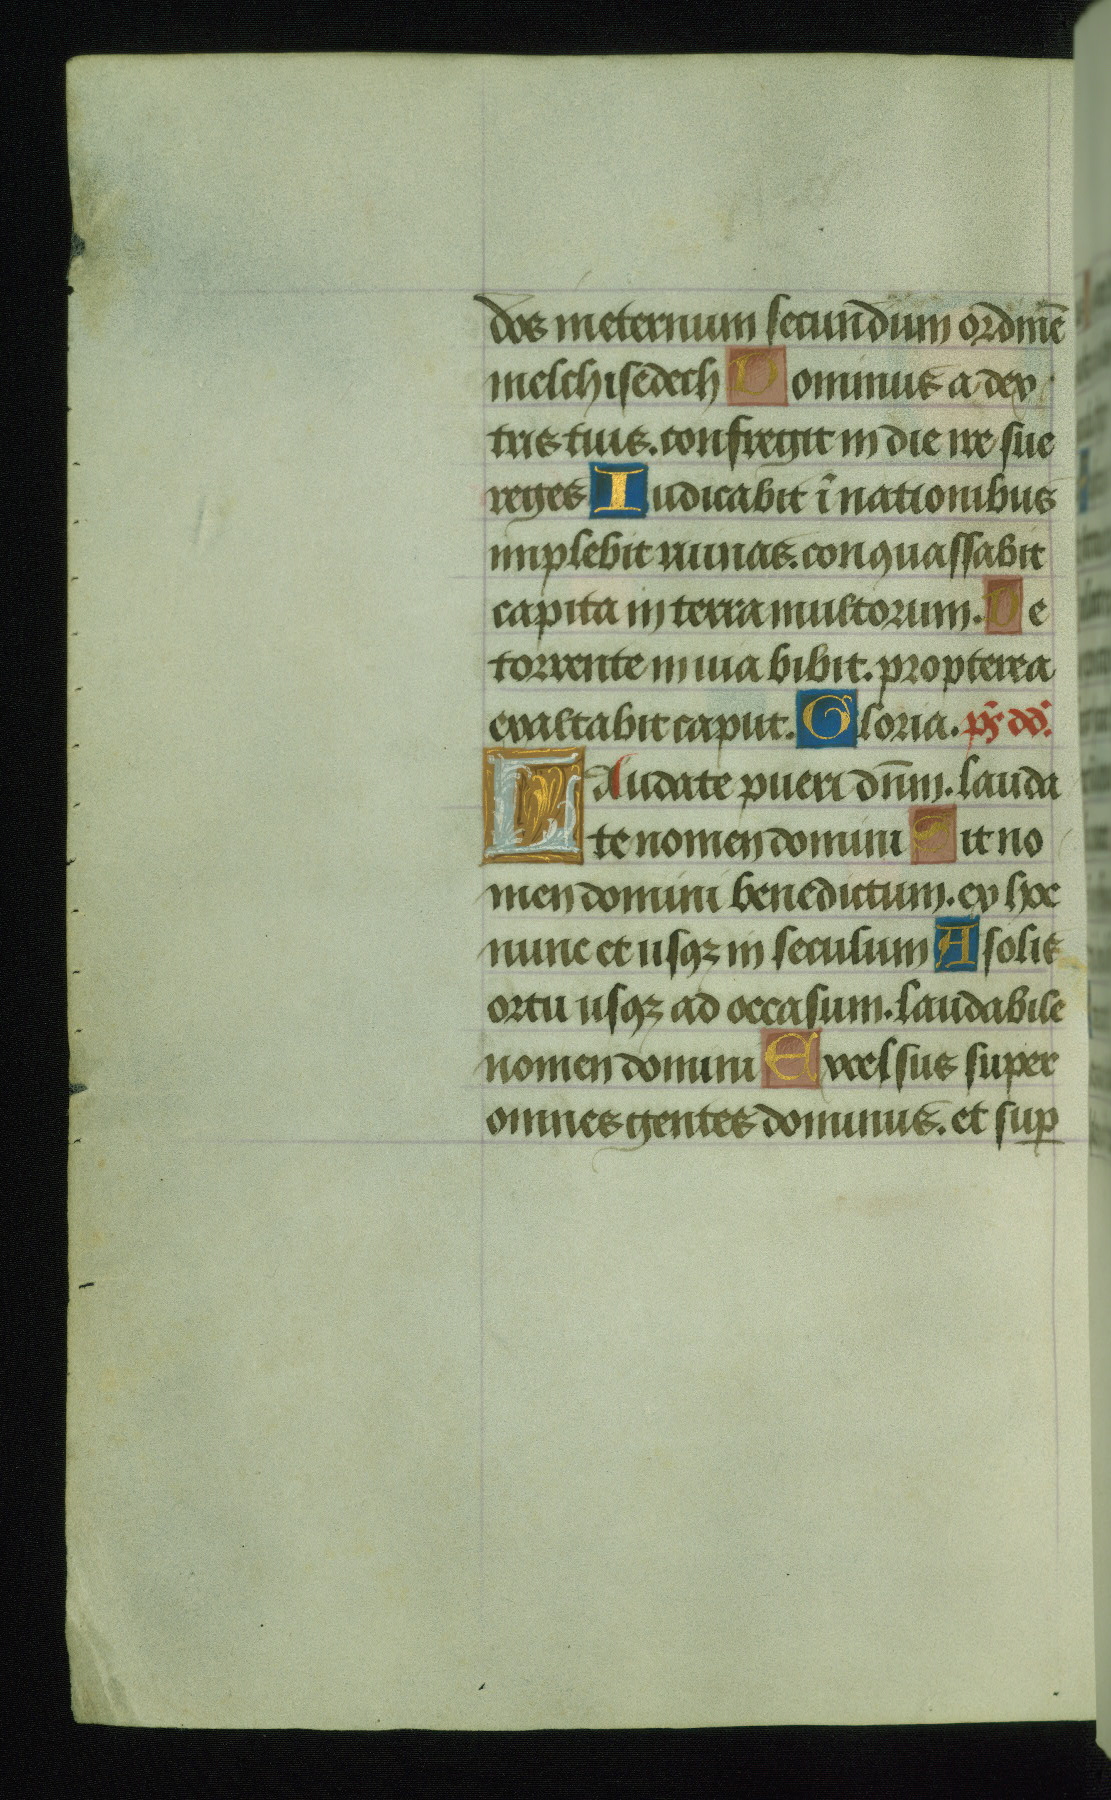 dos in eternum secundum ordinē
melchisedech Dominus a dex
tris tuis. confregit in die ire sue
reges Iudicabit ī nationibus
implebit ruinas. conquassabit
capita in terra multorum. De
torrente in uia bibit. propterea
exaltabit caput. Gloria. ps dd.
LAudate pueri dn̄m. lauda
te nomen domini Sit no
men domini benedictum. ex hoc
nunc et usqꝫ in seculum A solis
ortu usqꝫ ad occasum. laudabile
nomen domini Excelsus super
omnes gentes dominus. et suꝑ